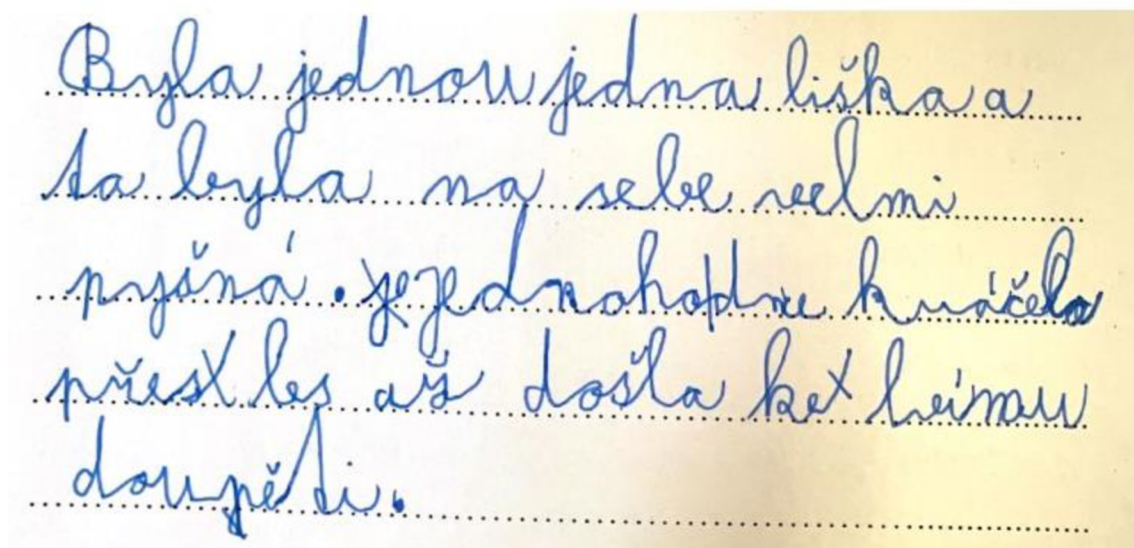 Byla jednou jedna liška a
ta byla na sebe velmi
pyšná. jednoho dne kráčela
přes les až došla ke lvímu
doupěti.